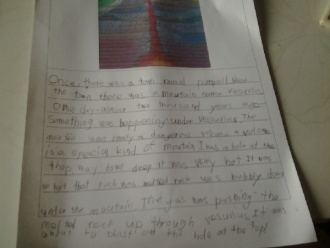 Once there was a town named pompeii near
the town there was a mountain
One day about two thousand years ago
Something was happening under vesuvius. The
was really a dangerous volcano a
is a special kind of mountain. has a hole at the
top way down deep it was very hot it was
so hot that rock was melted rock was
under the mountain The gas was pushing the
melted rock up through vesuvius. it was
to blast out the hole at the top!